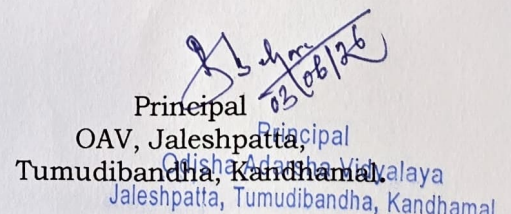 03/06/26
Principal
OAV, Jaleshpatta,
Tumudibandha, Kandhamal.
Principal
Odisha Adarsha Vidyalaya
Jaleshpatta, Tumudibandha, Kandhamal